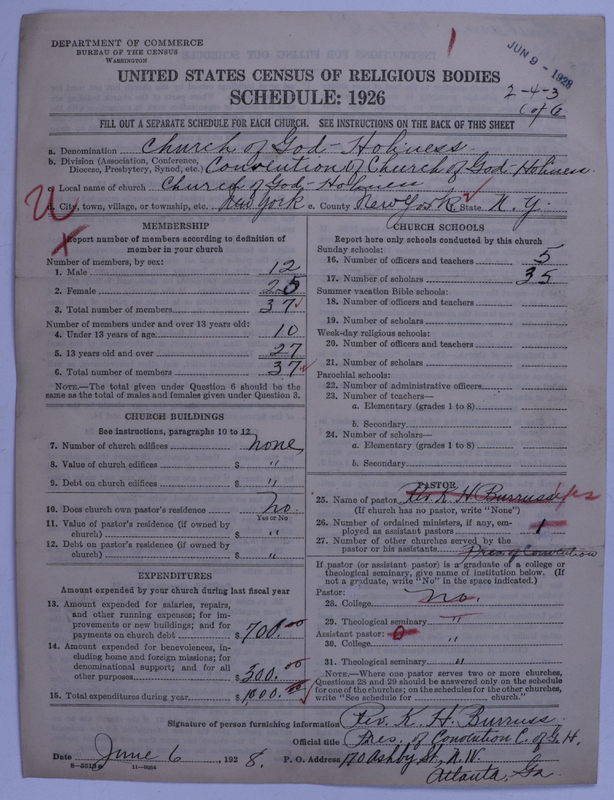 DEPARTMENT OF COMMERCE
BUREAU OF THE CENSUS
WASHINGTON
JUN 9 - 1928
UNITED STATES CENSUS OF RELIGIOUS BODIES
SCHEDULE: 1926
2-4-3
FILL OUT A SEPARATE SCHEDULE FOR EACH CHURCH. SEE INSTRUCTIONS ON THE BACK OF THIS SHEET
a. Denomination Church of God-Holiness.
b. Division (Association, Conference, Diocese, Presbytery, Synod, etc.) Convention of Church of God-Holiness.
c. Local name of church Church of God-Holiness
d. City, town, village, or township, etc. New York e. County New York State N.Y.
MEMBERSHIP
Report number of members according to definition of
member in your church
Number of members, by sex:
1. Male 12
2. Female 25
3. Total number of members 37
Number of members under and over 13 years old:
4. Under 13 years of age 10
5. 13 years old and over 27
6. Total number of members 37
NOTE.—The total given under Question 6 should be the
same as the total of males and females given under Question 3.
CHURCH BUILDINGS
See instructions, paragraphs 10 to 12
7. Number of church edifices none
8. Value of church edifices $ "
9. Debt on church edifices $ "
10. Does church own pastor's residence No.
Yes or No
11. Value of pastor's residence (if owned by
church) $ "
12. Debt on pastor's residence (if owned by
church) $ "
EXPENDITURES
Amount expended by your church during last fiscal year
13. Amount expended for salaries, repairs,
and other running expenses; for im-
provements or new buildings; and for
payments on church debt $ 700.00
14. Amount expended for benevolences,
including home and foreign missions; for
denominational support; and for all
other purposes $ 300.00
15. Total expenditures during year $ 1000.00
CHURCH SCHOOLS
Report here only schools conducted by this church
Sunday schools:
16. Number of officers and teachers 5
17. Number of scholars 35
Summer vacation Bible schools:
18. Number of officers and teachers
19. Number of scholars
Week-day religious schools:
20. Number of officers and teachers
21. Number of scholars
Parochial schools:
22. Number of administrative officers
23. Number of teachers—
a. Elementary (grades 1 to 8)
b. Secondary
24. Number of scholars—
a. Elementary (grades 1 to 8)
b. Secondary
PASTOR
25. Name of pastor Rev. K. H. Burruss yes
(If church has no pastor, write "None")
26. Number of ordained ministers, if any, em-
ployed as assistant pastors 1
27. Number of other churches served by the
pastor or his assistants Pres. of Convolution
If pastor (or assistant pastor) is a graduate of a college or
theological seminary, give name of institution below. (If
not a graduate, write "No" in the space indicated.)
Pastor:
28. College no.
29. Theological seminary "
Assistant pastor: 0
30. College "
31. Theological seminary "
NOTE.—Where one pastor serves two or more churches,
Questions 28 and 29 should be answered only on the schedule
for one of the churches; on the schedules for the other churches,
write "See schedule for church."
Signature of person furnishing information Rev. K. H. Burruss
Official title Pres. of Convolution C. of G. H.
Date June 6, 1928. P. O. Address 170 Ashby St., N.W.
Atlanta, Ga.
11-9054